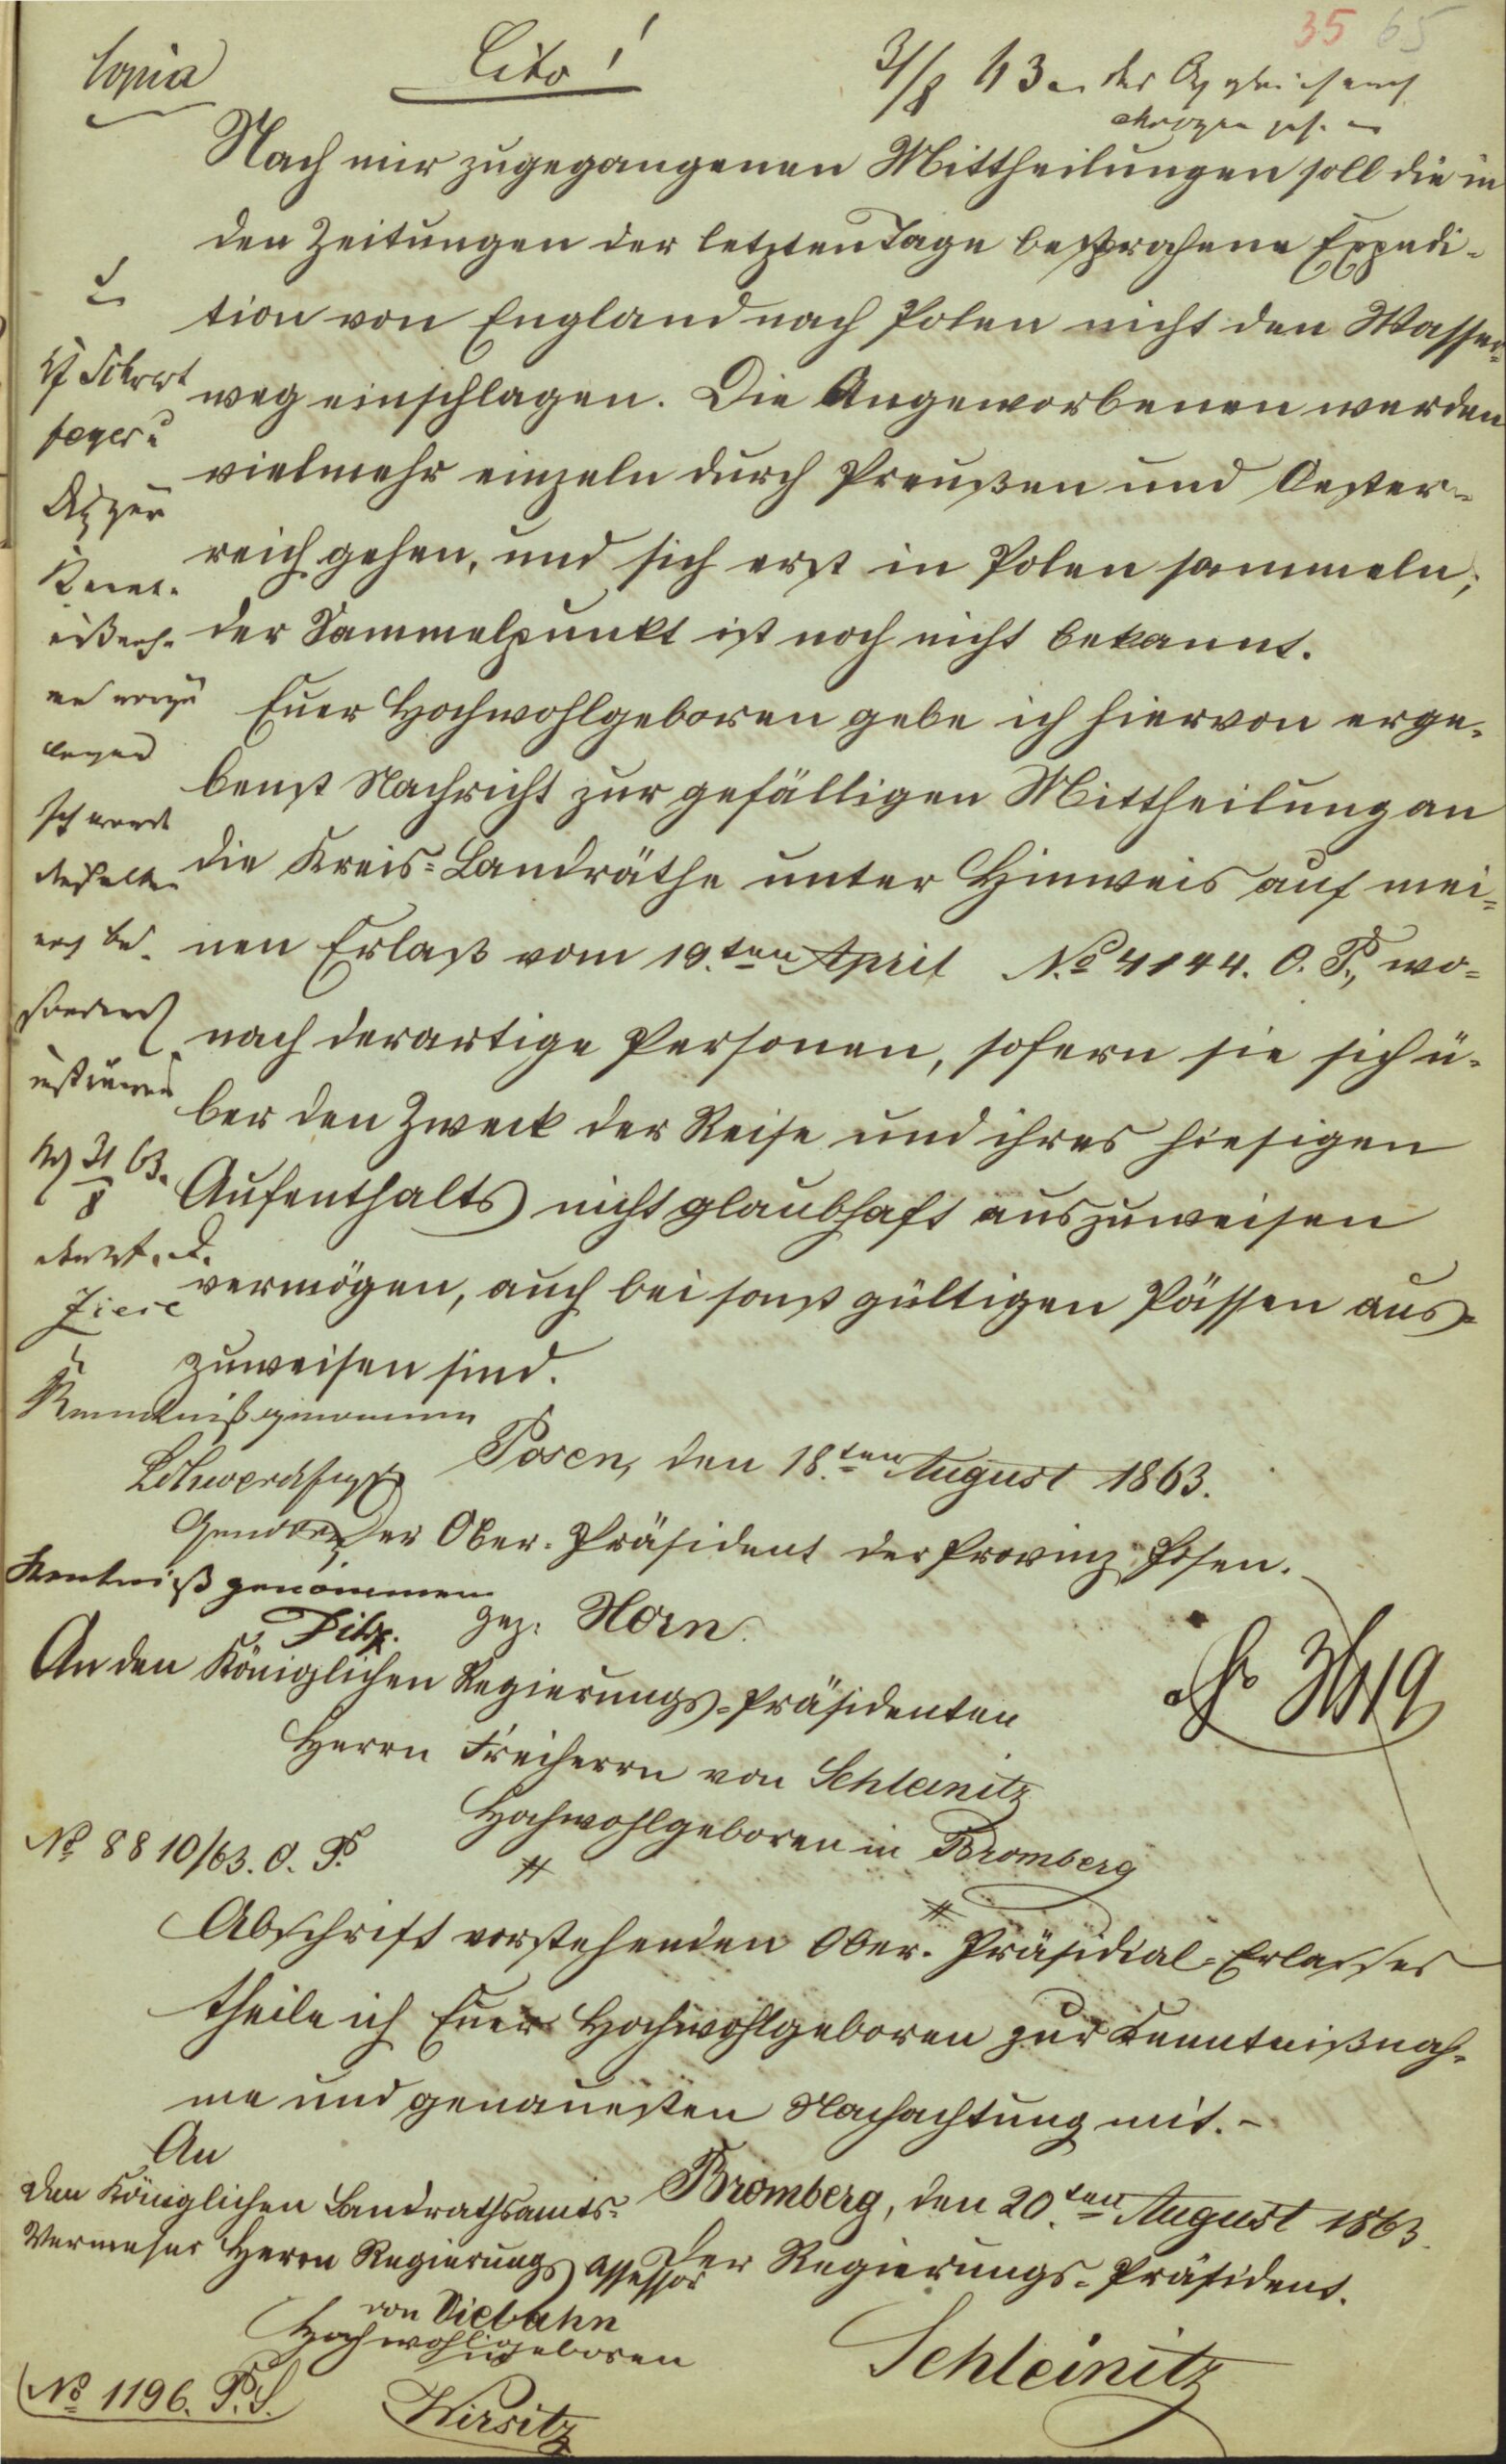 35 65
Copia
Cito!
31/8 63
Nach mir zugegangenen Mittheilungen soll die in
den Zeitungen der letzten Tage besprochene Expedi-
tion von England nach Polen nicht den Wasser-
weg einschlagen. Die Angeworbenen werden
vielmehr einzeln durch Preußen und Oester-
reich gehen, und sich erst in Polen sammeln;
der Sammelpunkt ist noch nicht bekannt.
Euer Hochwohlgeboren gebe ich hiervon erge-
benst Nachricht zur gefälligen Mittheilung an
die Kreis-Landräthe unter Hinweis auf mei-
nen Erlaß vom 19.ten April No 4144. O. P., wo-
nach derartige Personen, sofern sie sich ü-
ber den Zweck der Reise und ihres hiesigen
Aufenthalts nicht glaubhaft auszuweisen
vermögen, auch bei sonst gültigen Pässen aus-
zuweisen sind.
31/8 63.
Kenntniß genommen
Posen, den 18.ten August 1863.
Der Ober-Präsident der Provinz Posen.
Kentniß genommen
gez: Horn.
An den Königlichen Regierungs-Präsidenten
Herrn Freiherrn von Schleinitz
Hochwohlgeboren in Bromberg
No 8810/63. O. P.
Abschrift vorstehenden Ober-Präsidial-Erlasses
theile ich Euer Hochwohlgeboren zur Kenntnißnah-
me und genauesten Nachachtung mit.-
Bromberg, den 20.ten August 1863.
Der Regierungs-Präsident.
Schleinitz
An
den Königlichen Landrathsamts-
Verweser Herrn Regierungs Assessor
von Viebahn
Hochwohlgeboren
in
Wirsitz
No 1196. P. S.